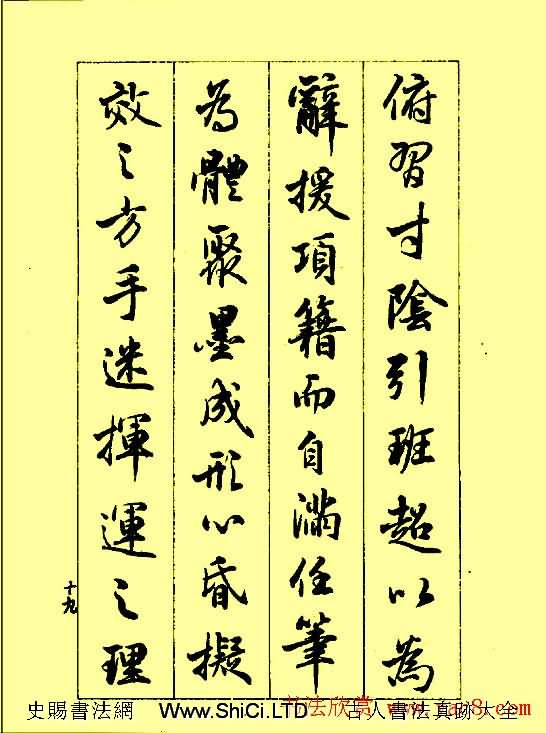 俯習寸陰引班超以為
辭援項籍而自滿任筆
為體聚墨成形心昏擬
效之方手迷揮運之理
十九
史賜書法網 Www.ShiCi.LTD 古人書法真跡大全
书法欣赏